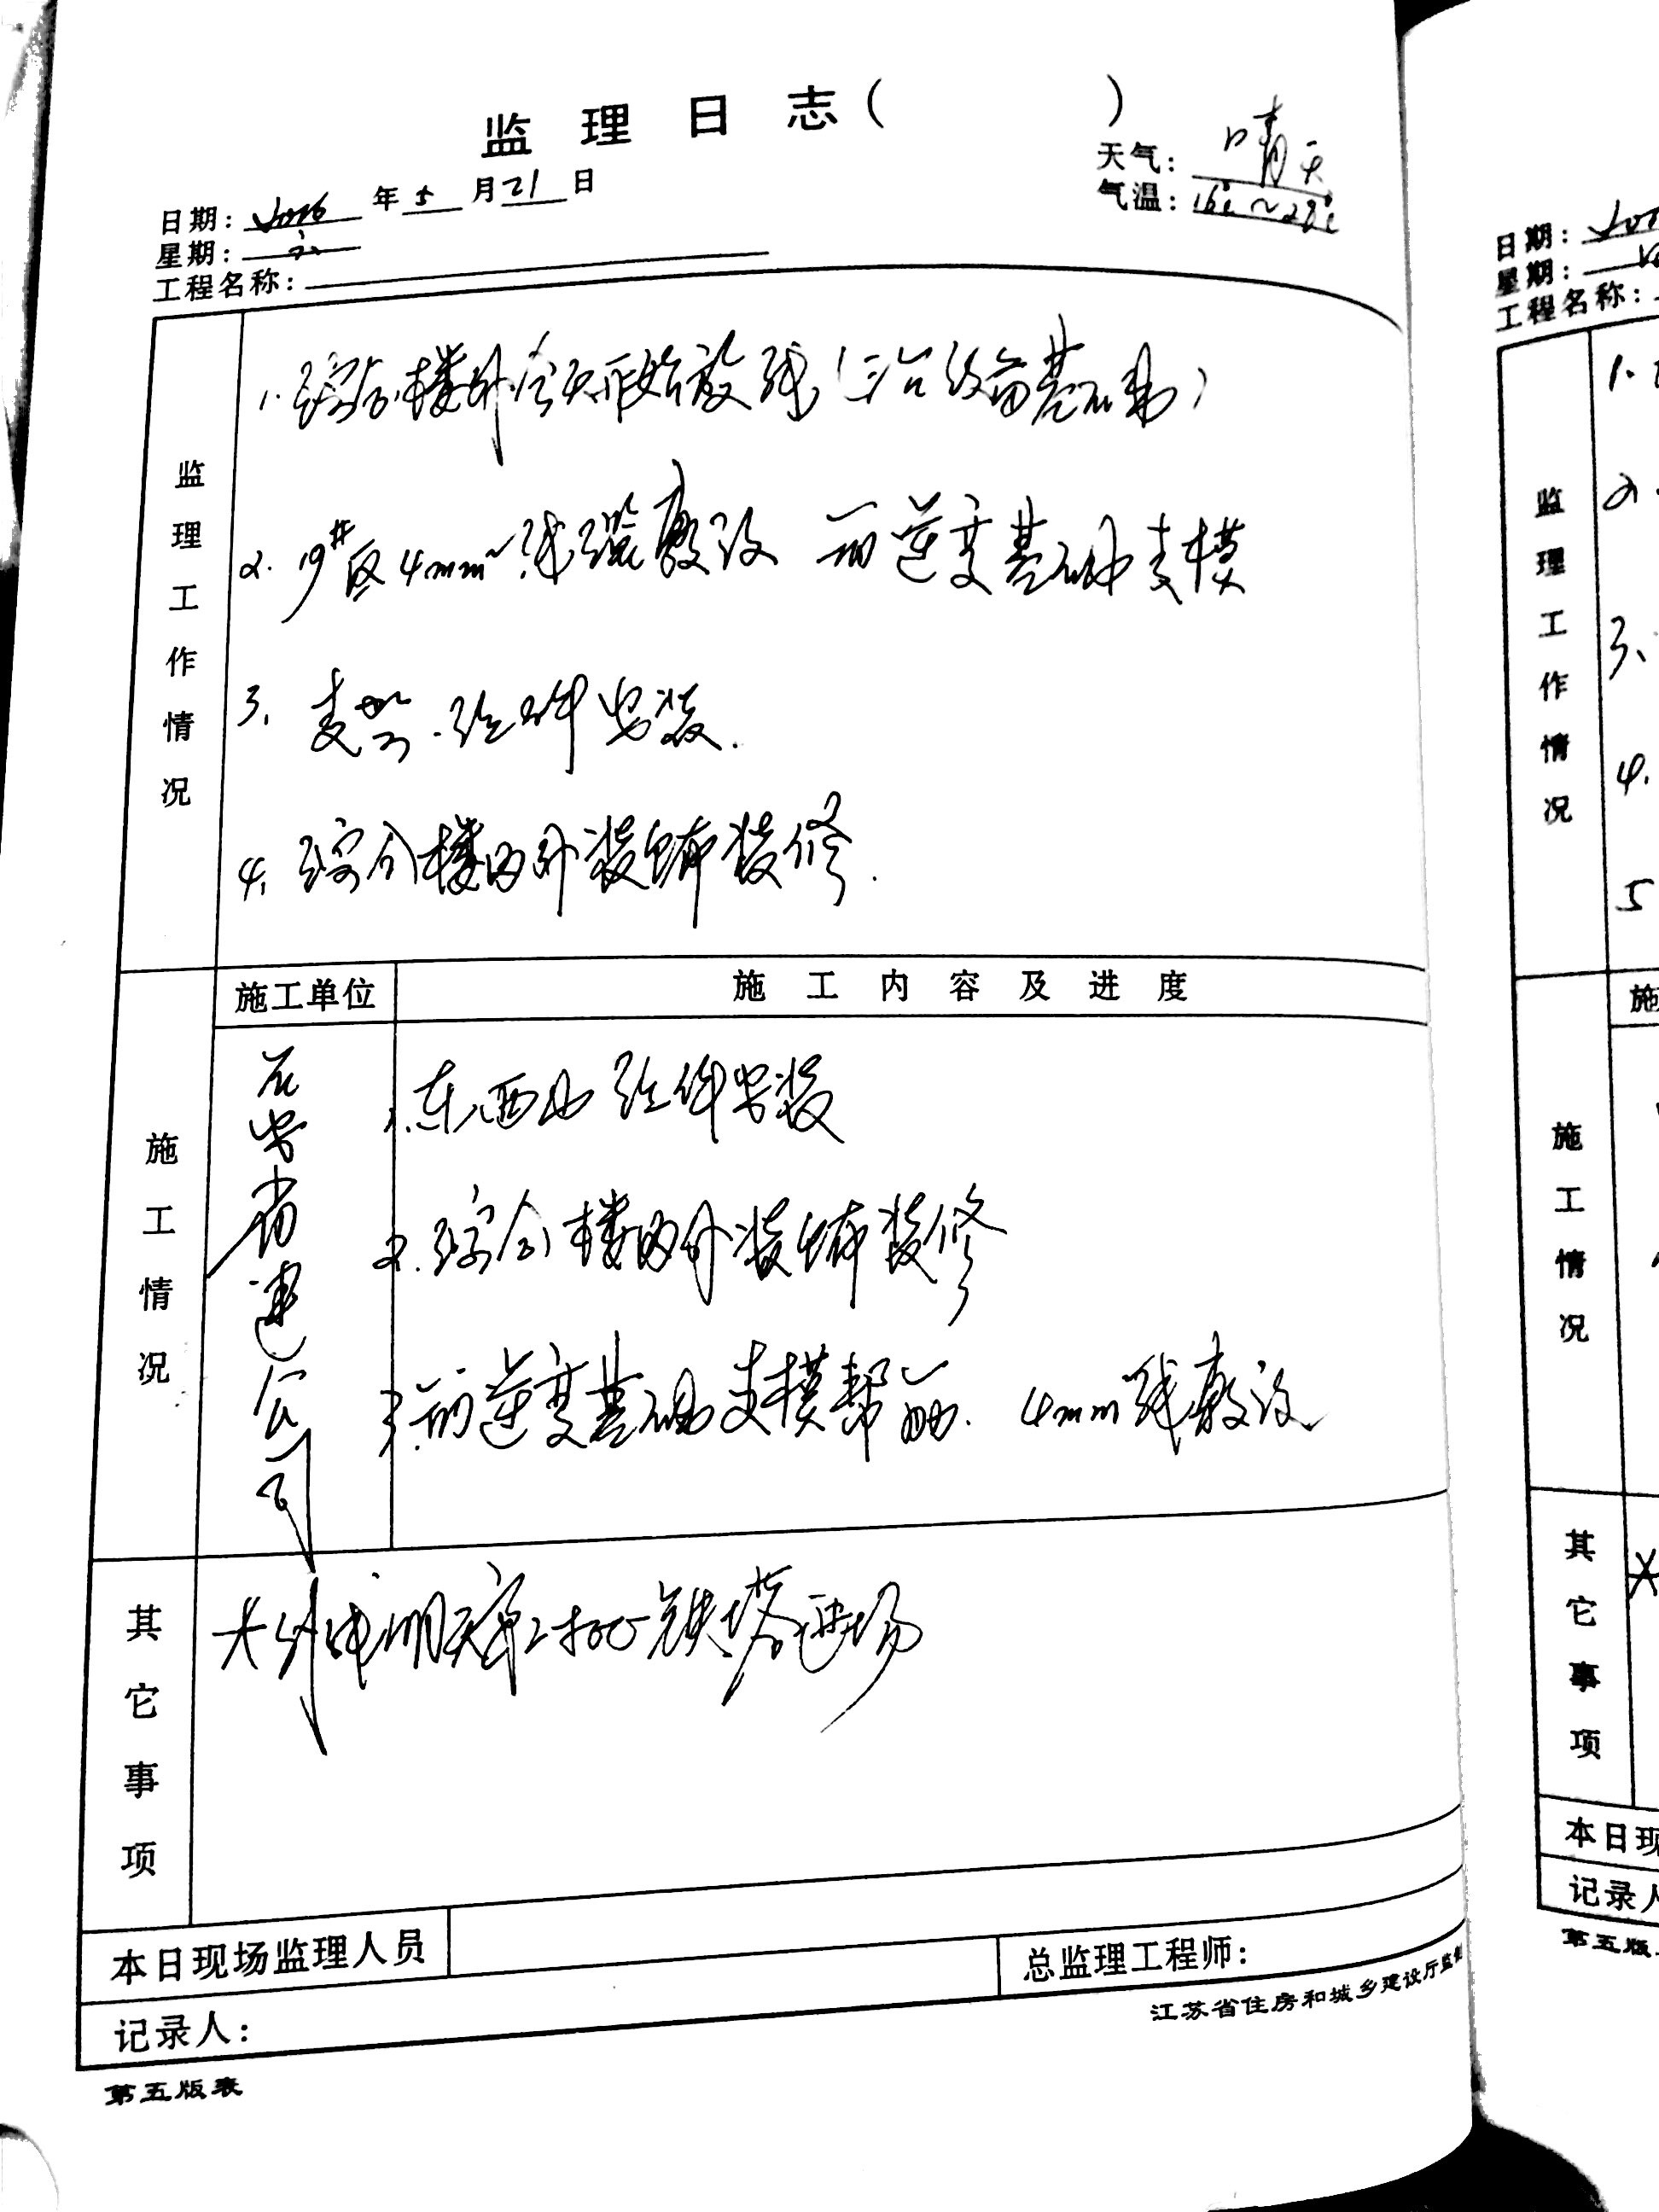 监理日志( )
日期: 2016 年 5 月 21 日
天气: 晴天
星期: 六
气温: 16℃~28℃
工程名称:
监理工作情况
1. 综合楼外今天开始放线(三台设备基础)
2. 19#区4mm²线缆敷设 箱逆变基础支模
3. 支架.组件安装.
4. 综合楼内外装饰装修.
施工情况
施工单位
施工内容及进度
公司
1. 东西山组件安装
2. 综合楼内外装饰装修
3. 箱逆变基础支模帮扎. 4mm线敷设
其它事项
大 明天 铁塔进场
本日现场监理人员
总监理工程师:
记录人:
江苏省住房和城乡建设厅监
第五版表
日期:
星期:
工程名称:
监理工作情况
1.
2.
3.
4.
5
施
施工情况
其它事项
本日现
记录人
第五版